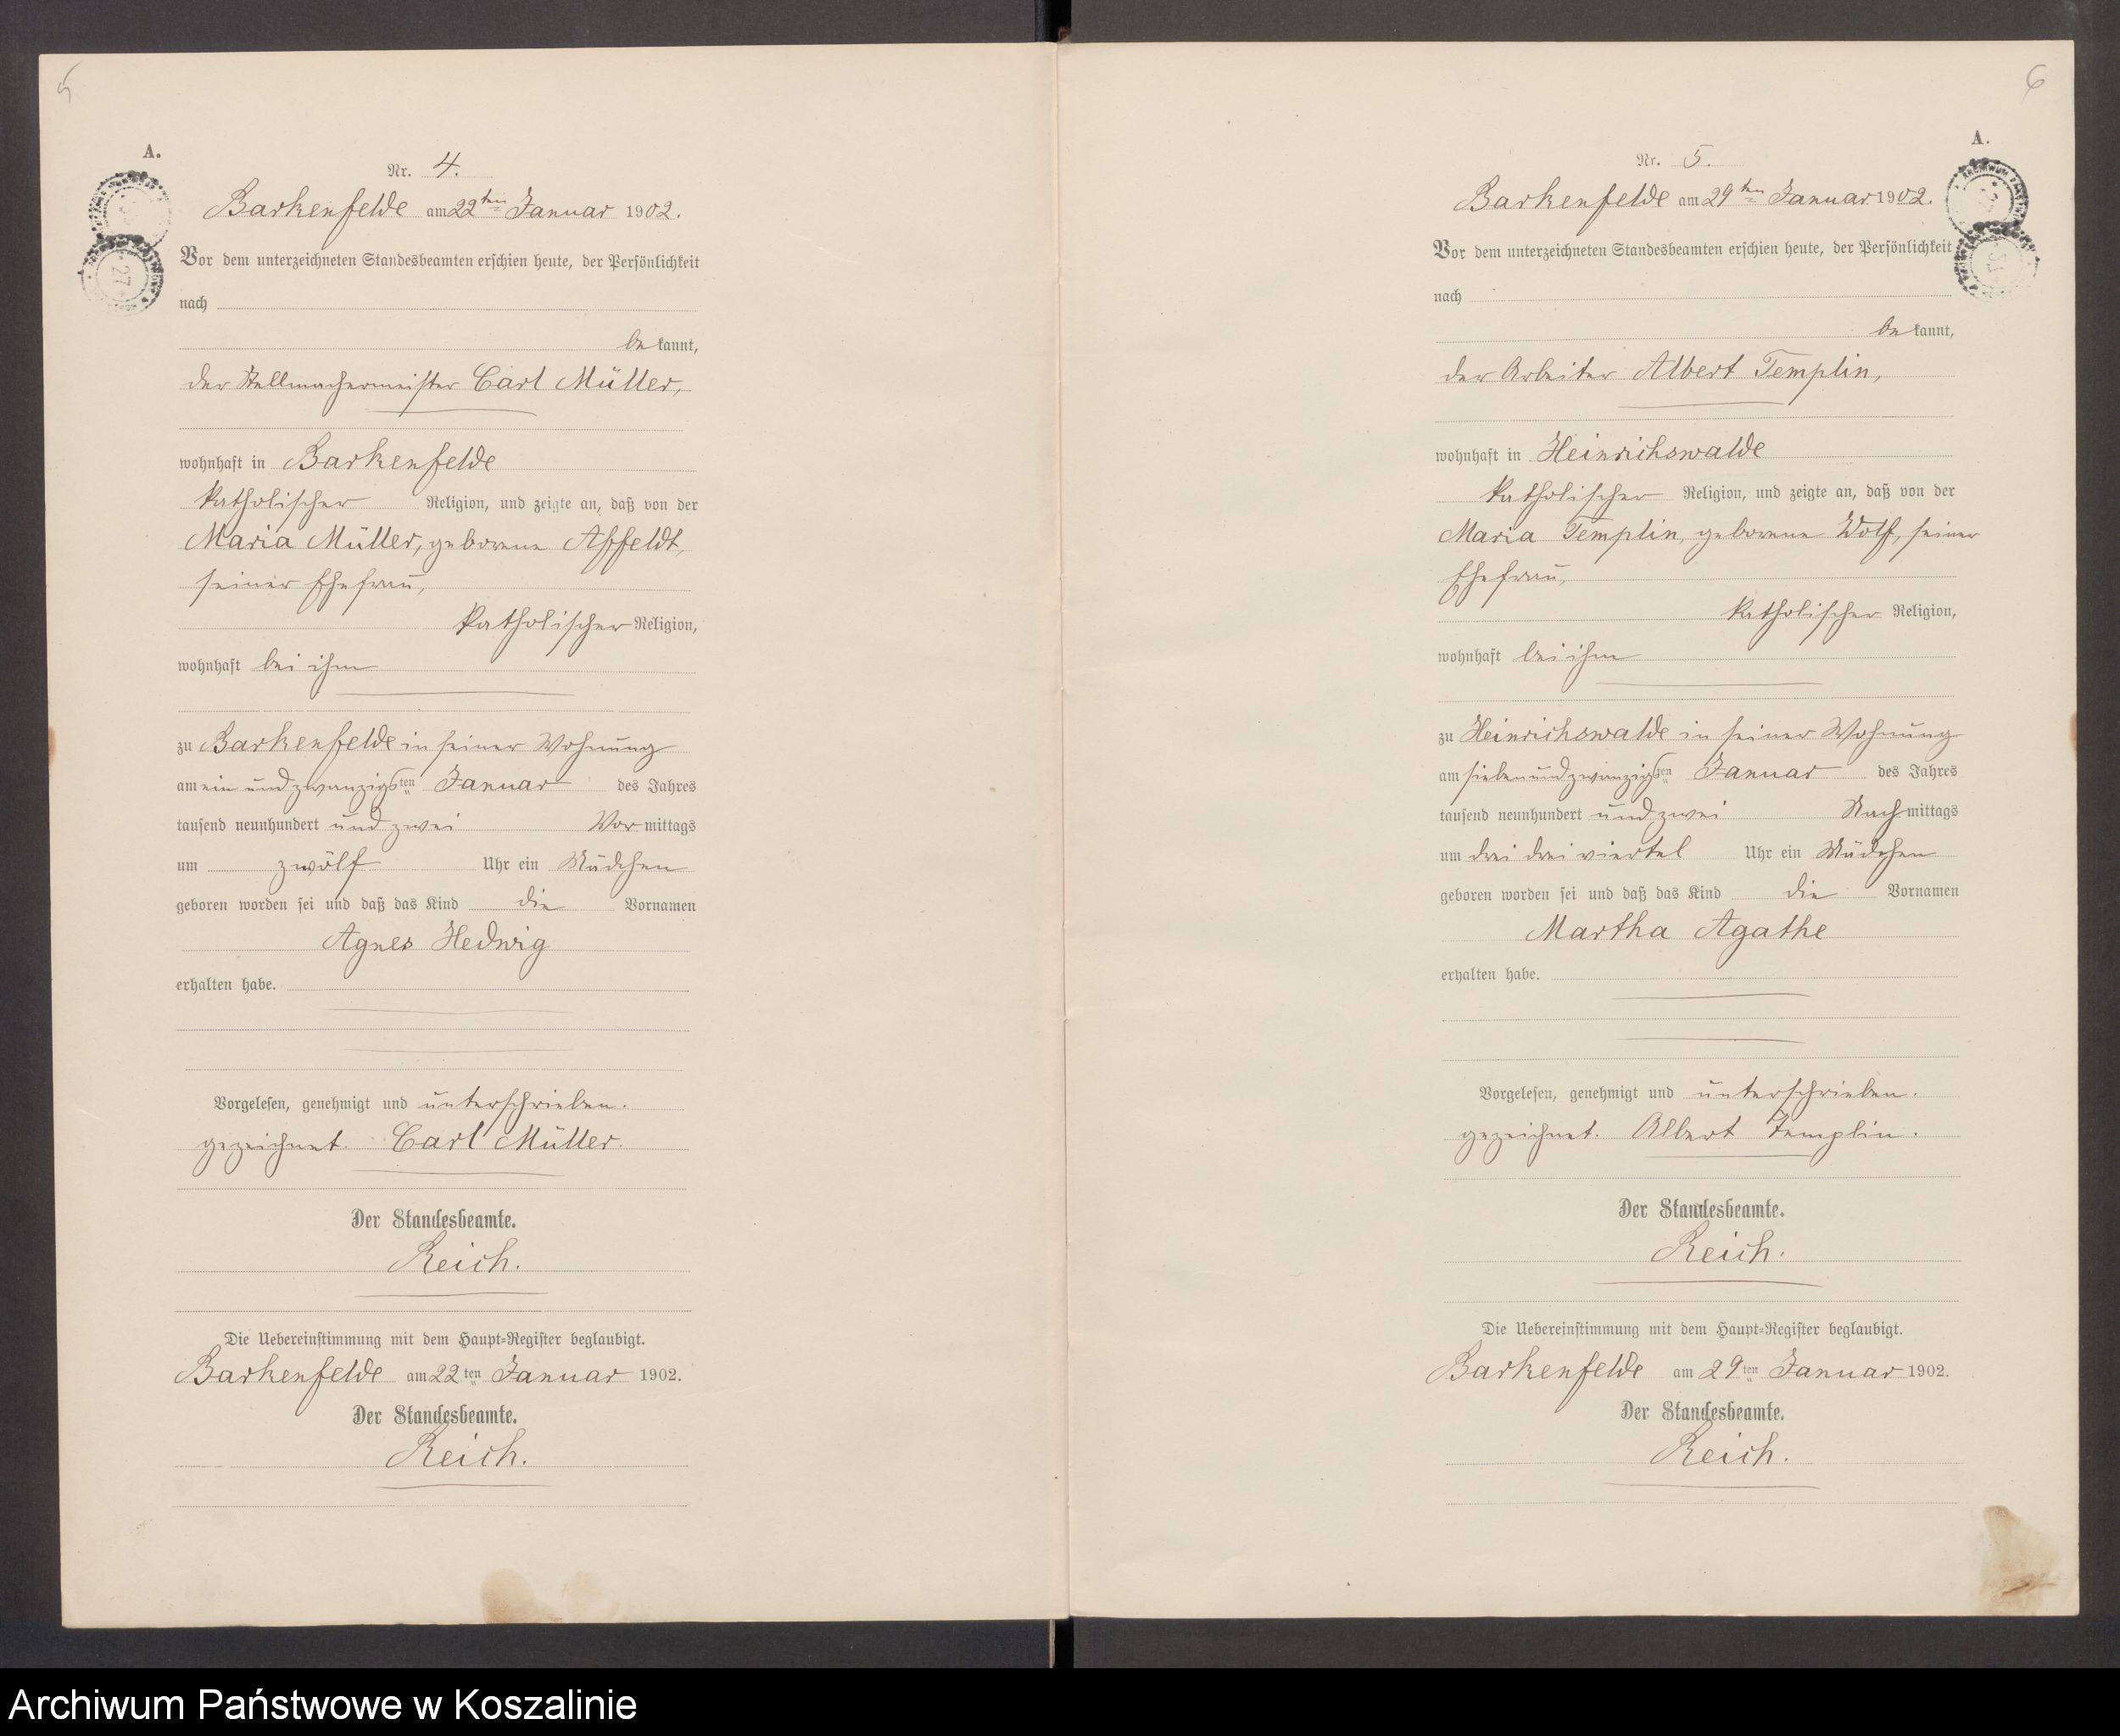 5
A.
Nr. 4.
Barkenfelde am 22ten Januar 1902.
Vor dem unterzeichneten Standesbeamten erschien heute, der Persönlichkeit
nach
be kannt,
der Stellmachermeister Carl Müller,
wohnhaft in Barkenfelde
katholischer Religion, und zeigte an, daß von der
Maria Müller, geborene Affeldt,
seiner Ehefrau,
katholischer Religion,
wohnhaft bei ihm
zu Barkenfelde in seiner Wohnung
am ein und zwanzigsten Januar des Jahres
tausend neunhundert und zwei Vor mittags
um zwölf Uhr ein Mädchen
geboren worden sei und daß das Kind die Vornamen
Agnes Hedwig
erhalten habe.
Vorgelesen, genehmigt und unterschrieben.
gezeichnet. Carl Müller.
Der Standesbeamte.
Reich.
Die Uebereinstimmung mit dem Haupt-Register beglaubigt.
Barkenfelde am 22ten Januar 1902.
Der Standesbeamte.
Reich.
6
A.
Nr. 5.
Barkenfelde am 29ten Januar 1902.
Vor dem unterzeichneten Standesbeamten erschien heute, der Persönlichkeit
nach
be kannt,
der Arbeiter Albert Templin,
wohnhaft in Heinrichswalde
katholischer Religion, und zeigte an, daß von der
Maria Templin, geborene Wolf, seiner
Ehefrau,
katholischer Religion,
wohnhaft bei ihm
zu Heinrichswalde in seiner Wohnung
am sieben und zwanzigsten Januar des Jahres
tausend neunhundert und zwei Nach mittags
um drei drei viertel Uhr ein Mädchen
geboren worden sei und daß das Kind die Vornamen
Martha Agathe
erhalten habe.
Vorgelesen, genehmigt und unterschrieben.
gezeichnet. Albert Templin.
Der Standesbeamte.
Reich.
Die Uebereinstimmung mit dem Haupt-Register beglaubigt.
Barkenfelde am 29ten Januar 1902.
Der Standesbeamte.
Reich.
Archiwum Państwowe w Koszalinie